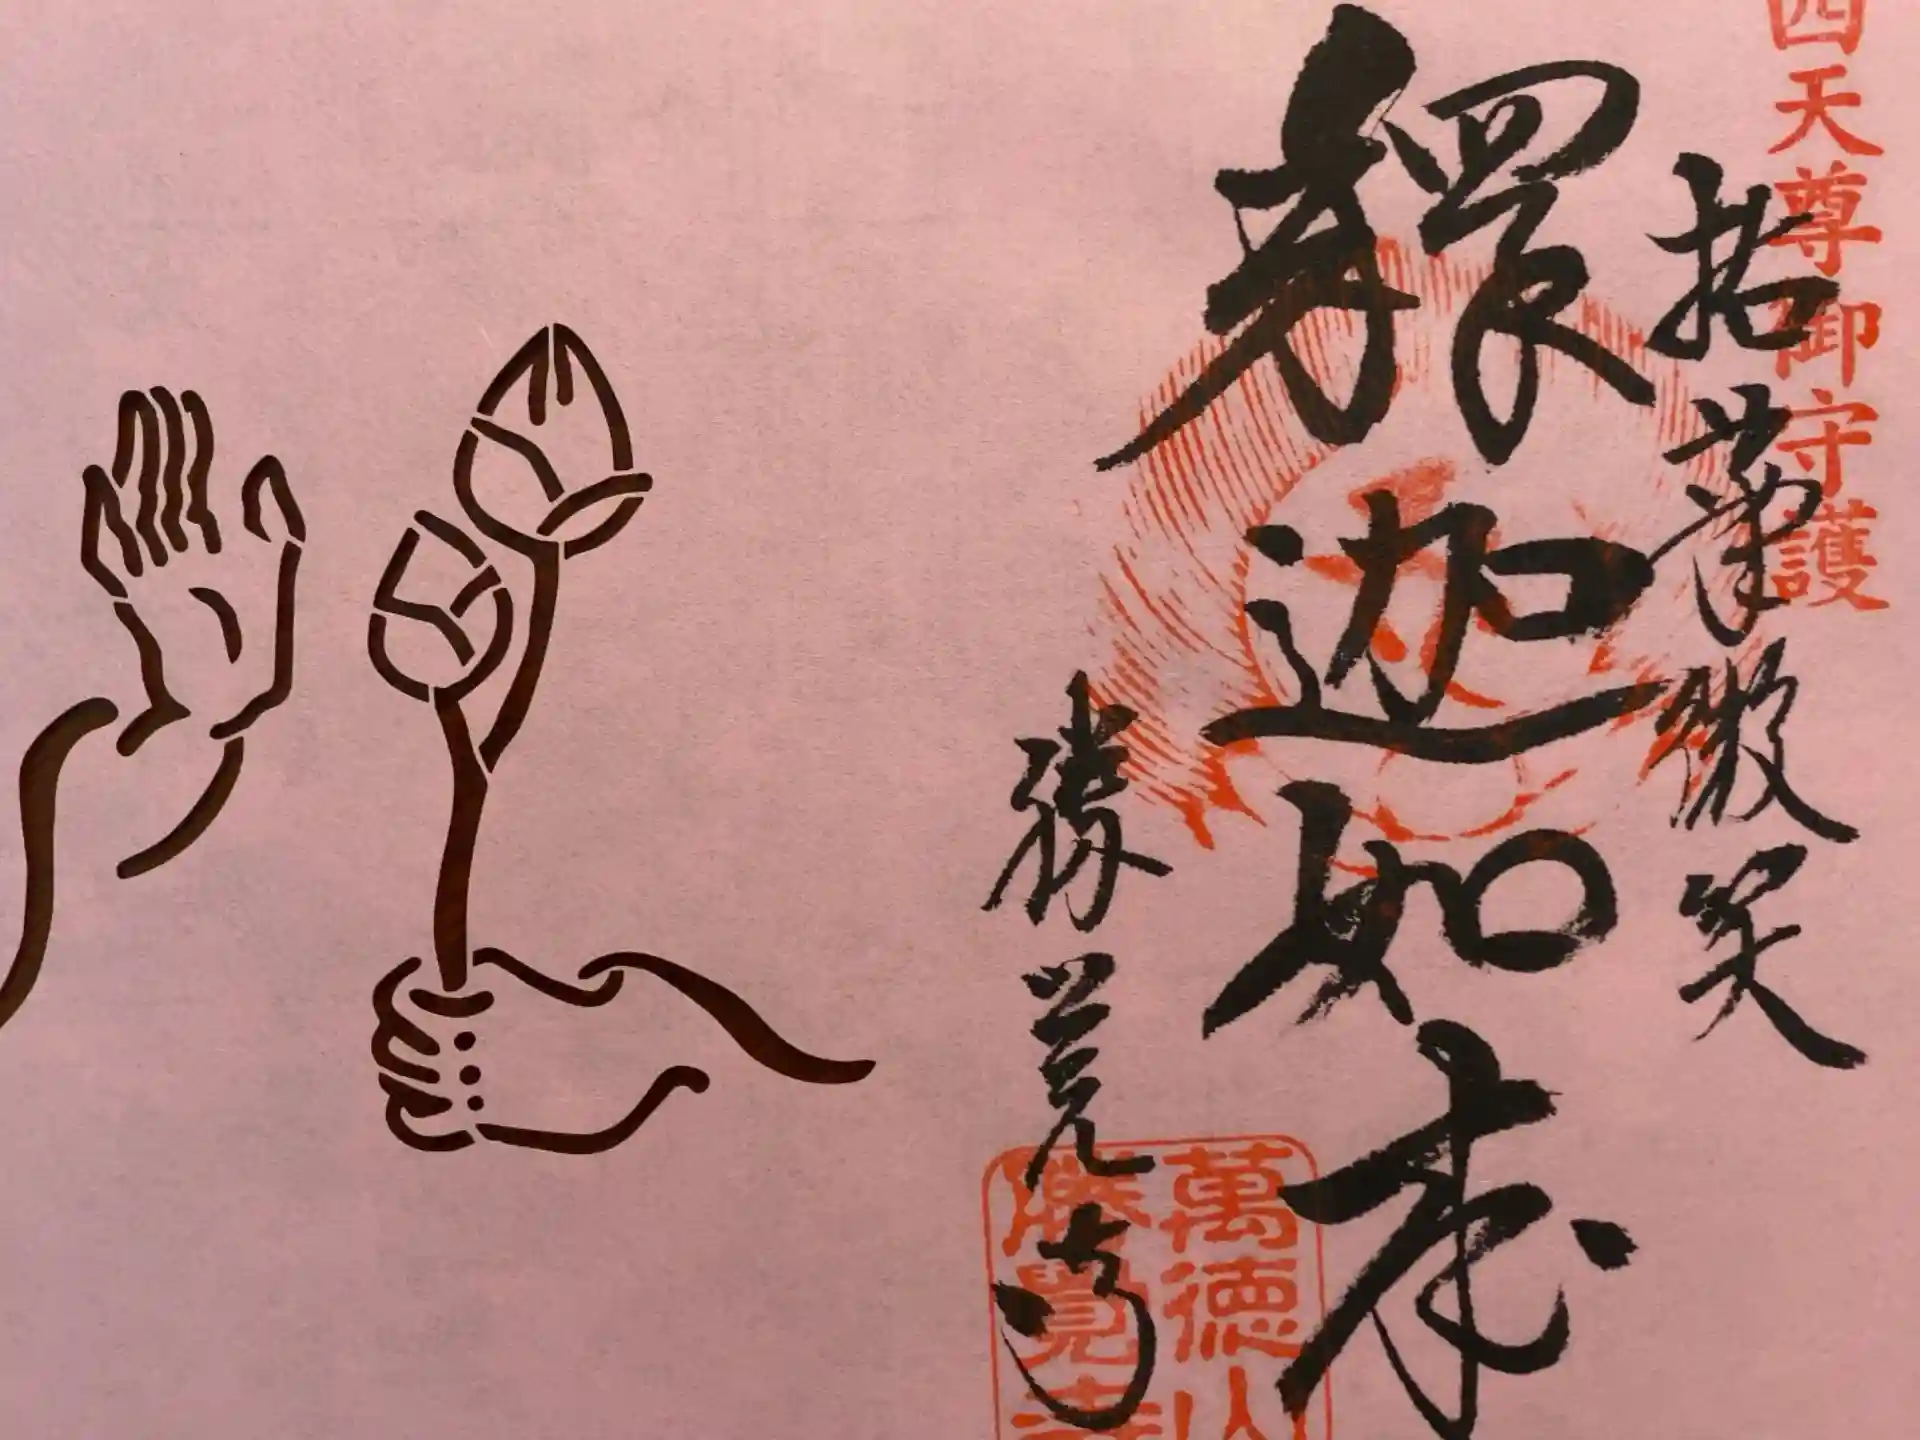 四天尊御守護
拈華微笑
釋迦如来
勝覚寺
萬徳山
勝覺寺